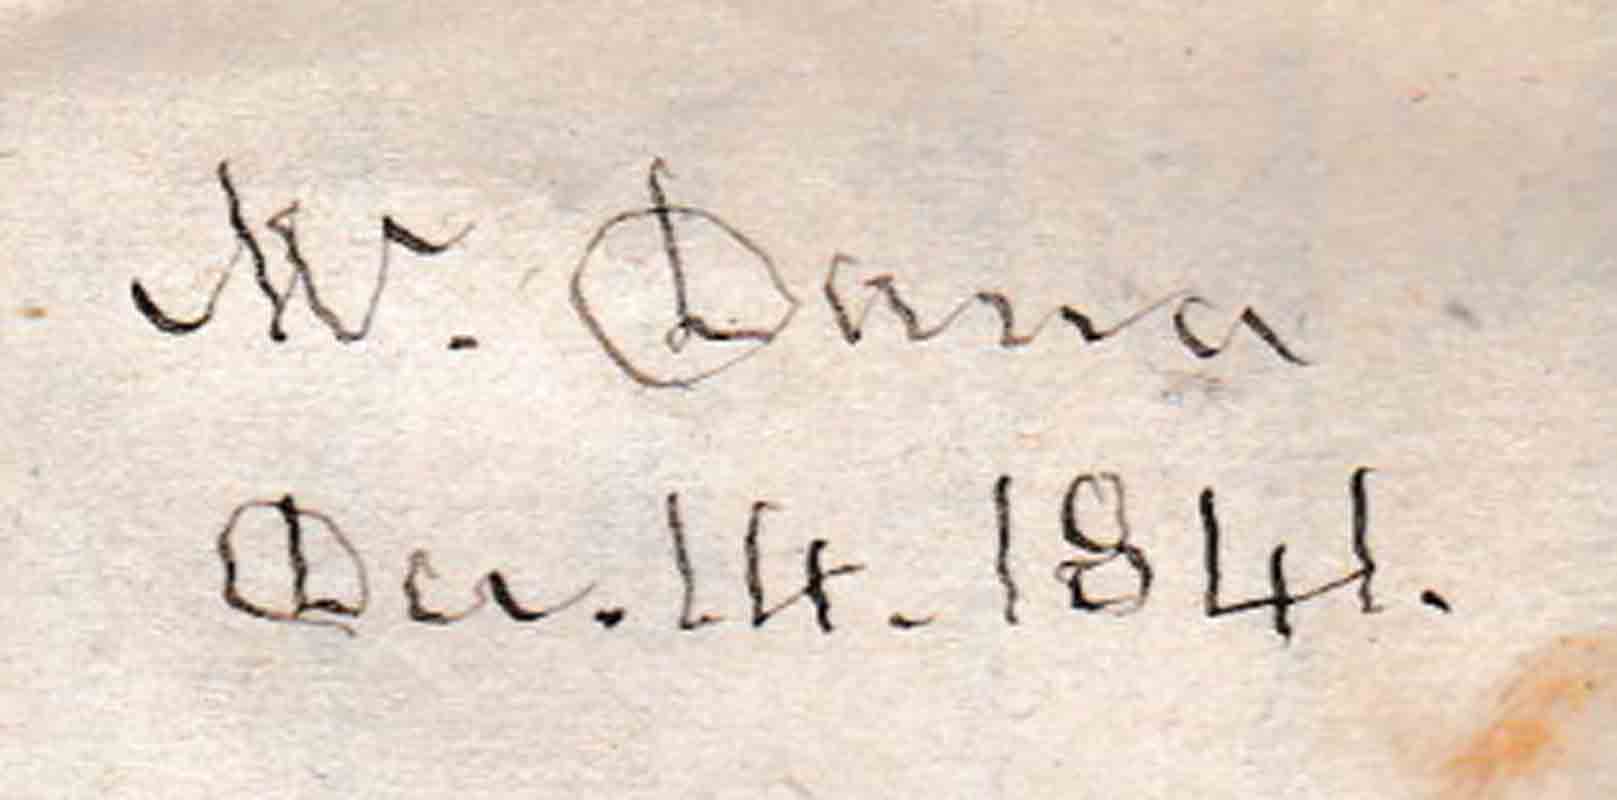 N. Dana
Dec. 14. 1841.